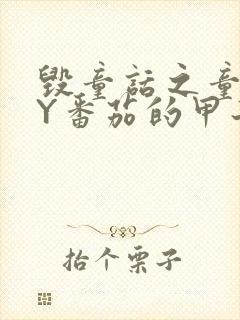 毁童话之童
Y番茄的甲
抬个栗子